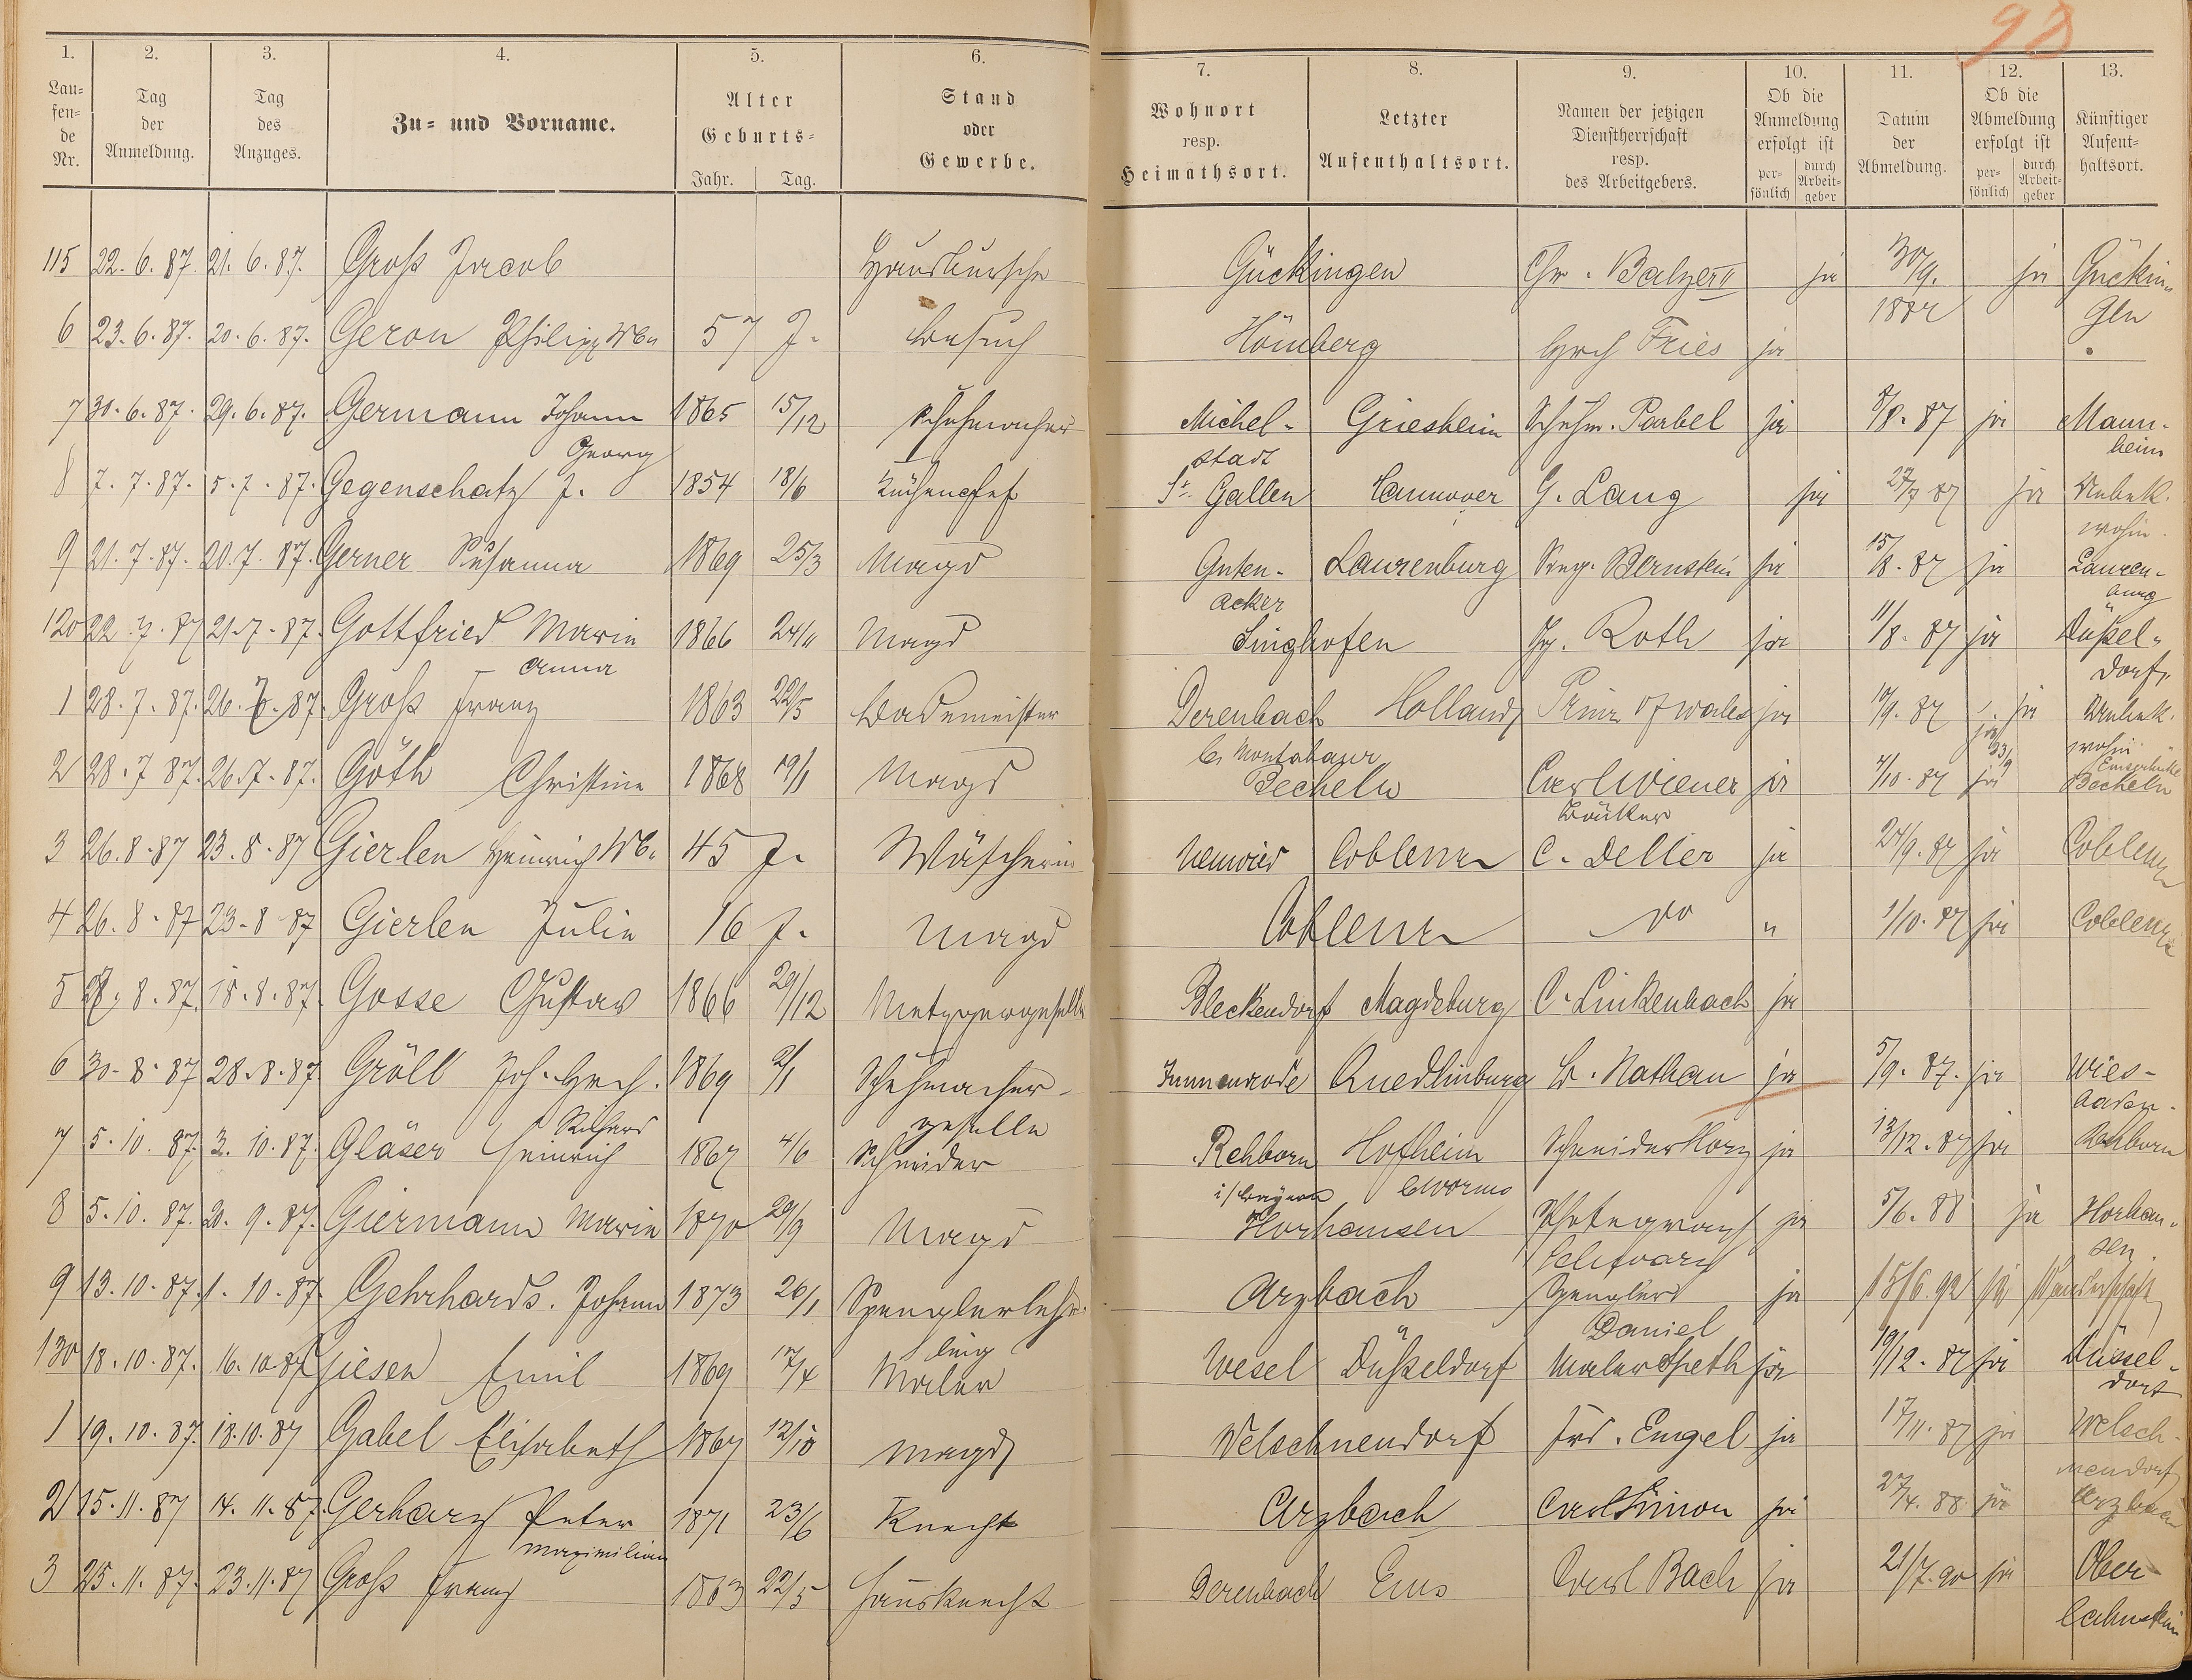 98
1. 2. 3. 4. 5. 6. 7. 8. 9. 10. 11. 12. 13.
Laufende Nr. | Tag der Anmeldung. | Tag des Anzuges. | Zu- und Vorname. | Alter Geburts- Jahr. Tag. | Stand oder Gewerbe. | Wohnort resp. Heimathsort. | Letzter Aufenthaltsort. | Namen der jetzigen Dienstherrschaft resp. des Arbeitgebers. | Ob die Anmeldung erfolgt ist persönlich durch Arbeitgeber | Datum der Abmeldung. | Ob die Abmeldung erfolgt ist persönlich durch Arbeitgeber | Künftiger Aufenthaltsort.
115 22.6.87. 21.6.87. Groß Jacob Hausbursche Gückingen Chr. Balzer II ja 30/9. 1887 ja Gückingen
6 23.6.87. 20.6.87. Geron Philipp Wb. 57 J. Besuch Hömberg Hrch Fries ja
7 30.6.87. 29.6.87. Germann Johann Georg 1865 15/12 Schuhmacher Michelstadt Griesheim Schuhm. Parbel ja 8/8.87 ja Mannheim
8 7.7.87. 5.7.87. Gegenschatz J. 1854 18/6 Küchenchef St. Gallen Hannover G. Lang ja 27/7 87 ja Unbek. wohin.
9 21.7.87. 20.7.87. Gerner Susanna 1869 25/3 Magd Gutenacker Laurenburg Bernstein ja 15/8.87 ja Laurenburg
120 22.7.87 21.7.87. Gottfried Maria Anna 1866 24/11 Magd Singhofen Roth ja 11/8.87 ja Düßeldorf.
1 28.7.87. 26.7.87. Groß Franz 1863 22/5 Bademeister Derenbach b. Montabaur Holland Prinz of Wales ja 10/9.87 ja Unbek. wohin
2 28.7 87. 26.7.87. Göth Christine 1868 19/1 Magd Becheln Carl Wiener Bäcker ja 4/10.87 ja 23/9 ja Emserhütte Becheln
3 26.8.87 23.8.87 Gierlen Heinrich Wb. 45 J. Wäscherin Neuwied Coblenz C. Deller ja 24/9.87 ja Coblenz
4 26.8.87 23.8 87 Gierlen Julie 16 J. Magd Coblenz do " 1/10.87 ja Coblenz
5 27.8.87. 18.8.87. Gosse Gustav 1866 29/12 Metzgergeselle Bleckendorf Magdeburg C. Linkenbach ja
6 30.8.87 28.8.87 Gröll Joh. Hrch. Richard 1869 2/1 Schuhmachergeselle Immenrode Quedlinburg B. Nathan ja 5/9.87. ja Wiesbaden.
7 5.10.87. 3.10.87. Gläser Heinrich 1867 4/6 Schneider Rehborn i/Bayern Hofheim b Worms Schneider Horz ja 13/12.87 ja Rehborn
8 5.10.87. 20.9.87. Giermann Maria 1870 29/9 Magd Horhausen Photograph ja 5/6.88 ja Horhausen.
9 13.10.87. 1.10.87. Gehrhards. Johann 1873 26/1 Spenglerlehrling Arzbach Spengler Daniel ja 15/6.92 ja Wanderschaft
130 18.10.87. 16.10.87 Giesen Emil 1869 17/4 Maler Wesel Düßeldorf Maler Speth ja 19/12.87 ja Düsseldorf
1 19.10.87. 18.10.87 Gabel Elisabeth 1867 12/10 Magd Welschneudorf Frd. Engel ja 17/11.87 ja Welschneudorf
2 15.11.87 14.11.87. Gerharz Peter Maximilian 1871 23/6 Knecht Arzbach Carl Simon ja 27/4.88 ja Arzbach
3 25.11.87. 23.11.87 Groß Franz 1863 22/5 Hausknecht Derenbach Ems Carl Bach ja 21/7.90 ja Oberlahnstein